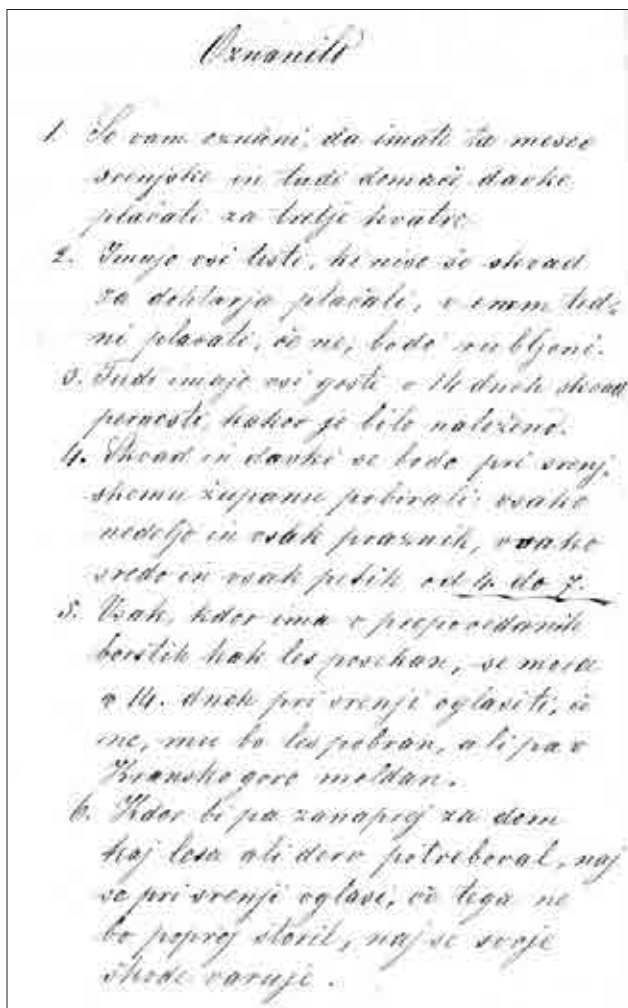 Oznanilo
1. Se vam oznani, da imate ta mesec
srenjske in tudi domače davke
plačati za tretje kvatre.
2. Imajo vsi tisti, ki niso še
za dohtarja plačali, v enem ted-
ni plačati, če ne, bodo rubljeni.
3. Tudi imajo vsi gosti v 14 dneh
kakor je bilo naloženo.
4. in davki se bodo pri srenj-
skemu županu pobirali vsako
nedeljo in vsak praznik, vsako
sredo in vsak petik od 4. do 7.
5. Vsak, kdor ima v prepovedanih
borštih kak les posekan, se mora
v 14. dneh pri srenji oglasiti, če
ne, mu bo les pobran, ali pa v
Kransko goro moldan.
6. Kdor bi pa zanaprej za dom
kaj lesa ali derv potreboval, naj
se pri srenji oglasi, če tega ne
bo poprej storil, naj se svoje
škode varuje.